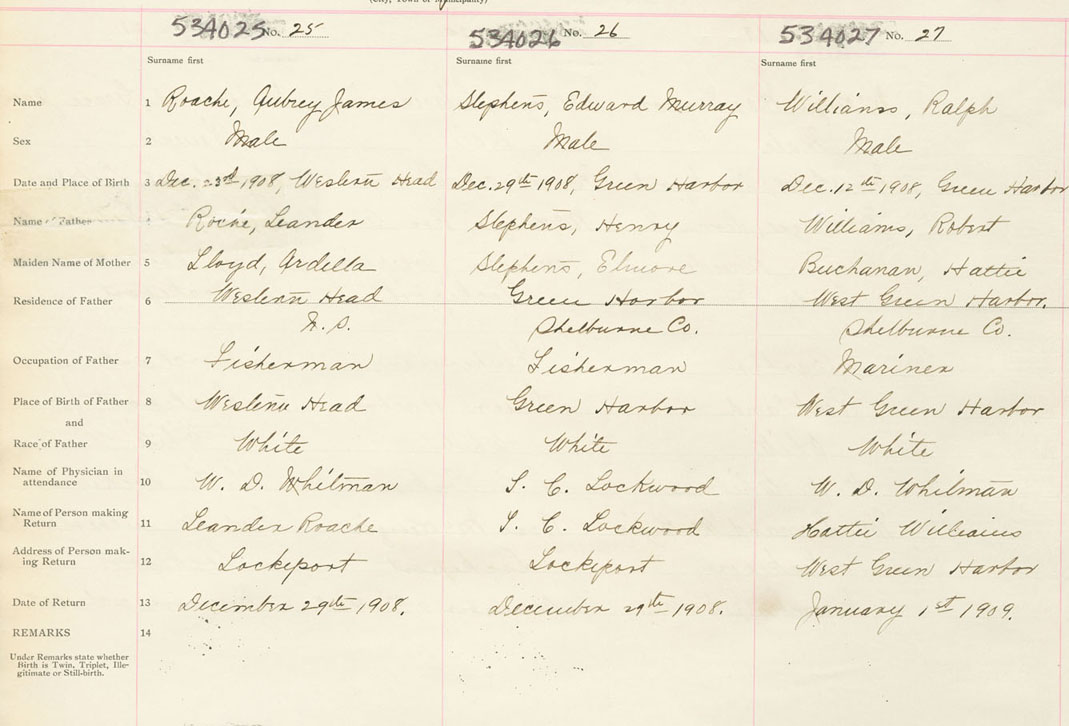 (City, Town or Municipality)
534025 No. 25 534026 No. 26 534027 No. 27
Surname first Surname first Surname first
Name 1 Roache, Aubrey James Stephens, Edward Murray Williams, Ralph
Sex 2 Male Male Male
Date and Place of Birth 3 Dec. 23rd 1908, Western Head Dec. 29th 1908, Green Harbor Dec. 12th 1908, Green Harbor
Name of Father Roche, Leander Stephens, Henry Williams, Robert
Maiden Name of Mother 5 Lloyd, Ardella Stephens, Elmore Buchanan, Hattie
Residence of Father 6 Western Head Green Harbor West Green Harbor.
N. S. Shelburne Co. Shelburne Co.
Occupation of Father 7 Fisherman Fisherman Mariner
Place of Birth of Father 8 Western Head Green Harbor West Green Harbor
and
Race of Father 9 White White White
Name of Physician in
attendance 10 W. D. Whitman S. C. Lockwood W. D. Whitman
Name of Person making
Return 11 Leander Roache S. C. Lockwood Hattie Williams
Address of Person mak-
ing Return 12 Lockeport Lockeport West Green Harbor
Date of Return 13 December 29th 1908. December 29th 1908. January 1st 1909.
REMARKS 14
Under Remarks state whether
Birth is Twin, Triplet, Ille-
gitimate or Still-birth.